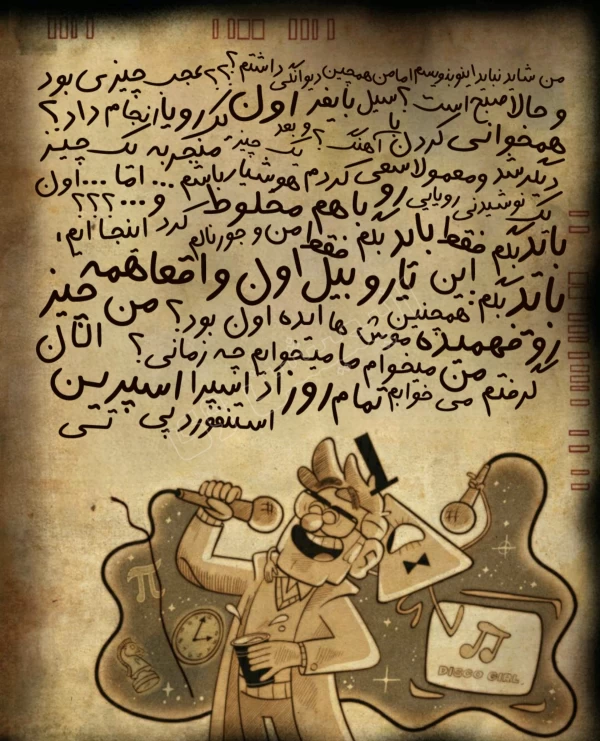 من شاید نباید اینو بنویسم اما من همچین دیوانگی داشتم؟؟؟ عجب چیزی بود
و حالا صبح است؟ سیل بایفر اون یک رویا رانجام داد؟
همخوانی کردن با آهنگ؟ و بعد یک چیز منجر به یک چیز
دیگر شد و معمولا سعی کردم هوشیار باشم... اما... اون
یک نوشیدنی رویایی رو با هم مخلوط کرد و...؟؟؟
باید بگم فقط باید بگم فقط من و جورنالم اینجا ایم،
باید بگم: این یارو بیل اون واقعا همه چیز
رو فهمیده همچنین موش ها ایده اون بود؟ من
من میخوام ما میخوایم چه زمانی؟ الان
گرفتم می خوابم تمام روز اد اسپرا اسپرین
استنفورد پی تسی
π
DISCO GIRL